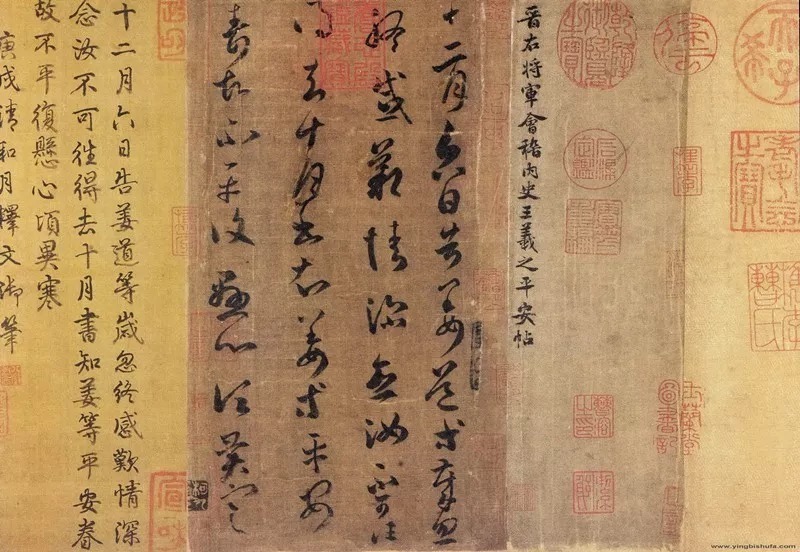 古希天子
乾隆御覽之寶
石渠定鑑
寶笈重編
晉右將軍會稽内史王羲之平安帖
十二月六日告姜道等歲忽
終感歎情深念汝不可往
得去十月書知姜等平安
壽故不平復懸心頃異寒
十二月六日告姜道等歲忽終感歎情深
念汝不可往得去十月書知姜等平安眷
故不平復懸心頃異寒
庚戌清和月釋文御筆
www.yingbishufa.com